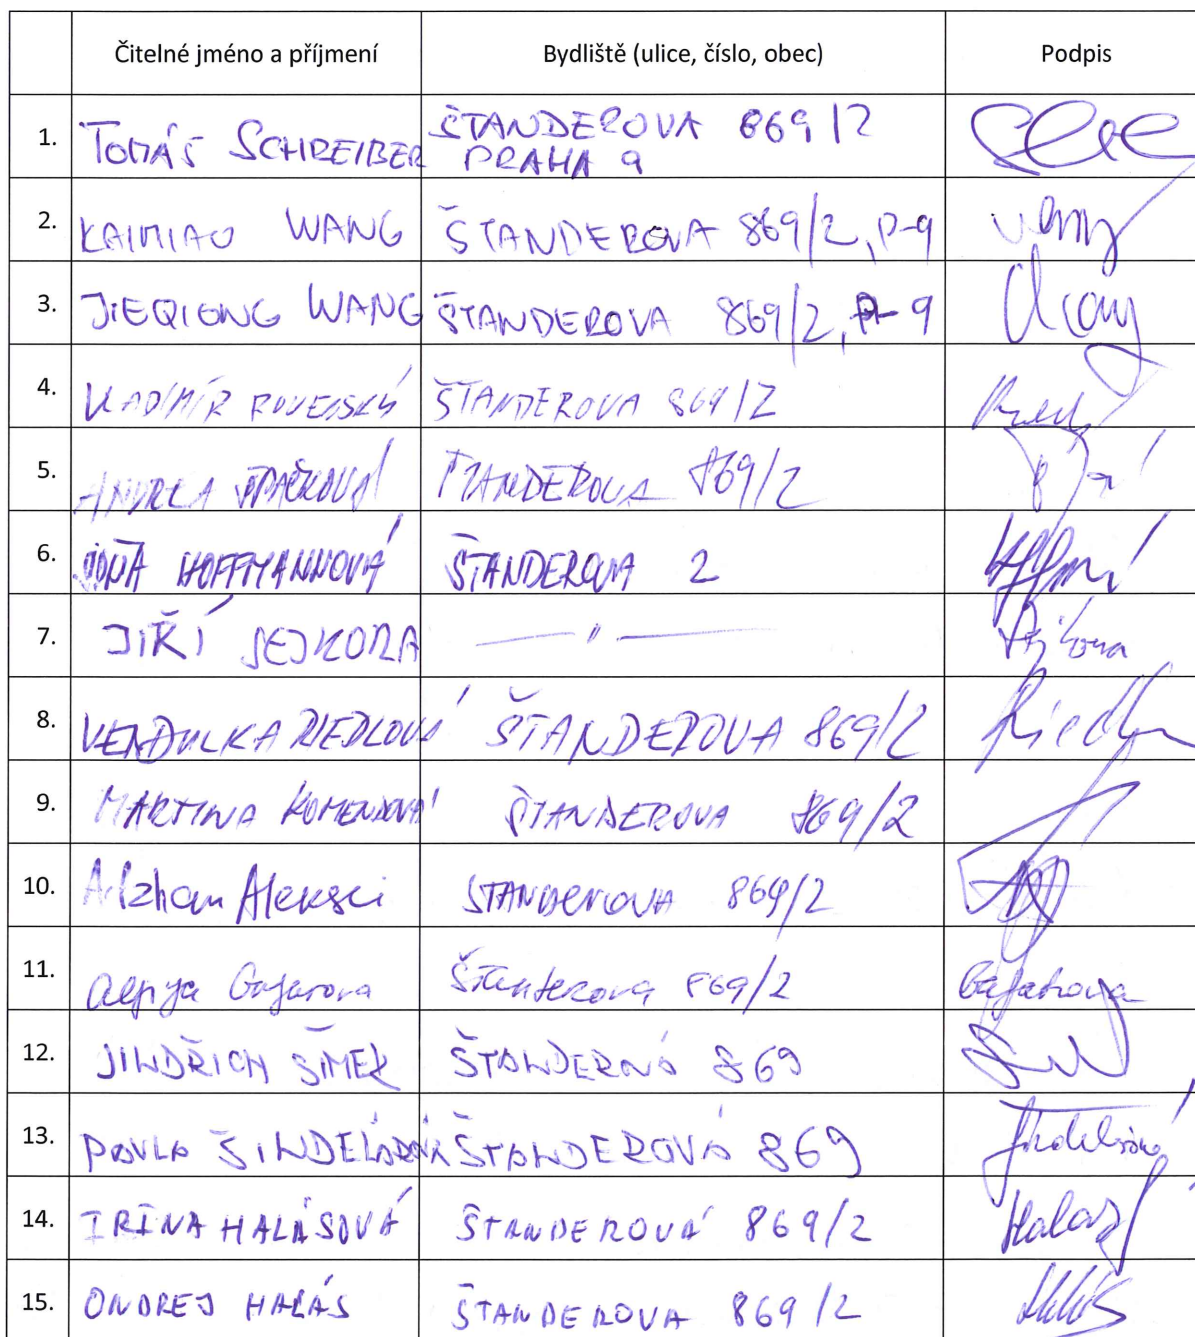 Čitelné jméno a příjmení Bydliště (ulice, číslo, obec) Podpis
1. TOMÁŠ SCHREIBER ŠTANDEROVA 869/2
PRAHA 9
2. KAIMIAO WANG ŠTANDEROVA 869/2, P-9
3. JIEQIONG WANG ŠTANDEROVA 869/2, P-9
4. VLADIMÍR ŠTANDEROVA 869/2
5. ANDREA ŠTANDEROVA 869/2
6. HOFFMANNOVÁ ŠTANDEROVA 2
7. JIŘÍ SEJKORA —— " ——
8. VENDULKA RIEDLOVÁ ŠTANDEROVA 869/2
9. MARTINA ŠTANDEROVA 869/2
10. Aleksei STANDEROVA 869/2
11. Gafarova Štanderova 869/2 Gafarova
12. JINDŘICH ŠIMEK ŠTANDERNÁ 869
13. PAVLA ŠINDELÁŘOVÁ ŠTANDEROVÁ 869
14. IRINA HALÁSOVÁ ŠTANDEROVÁ 869/2
15. ONDREJ HALÁS ŠTANDEROVA 869/2